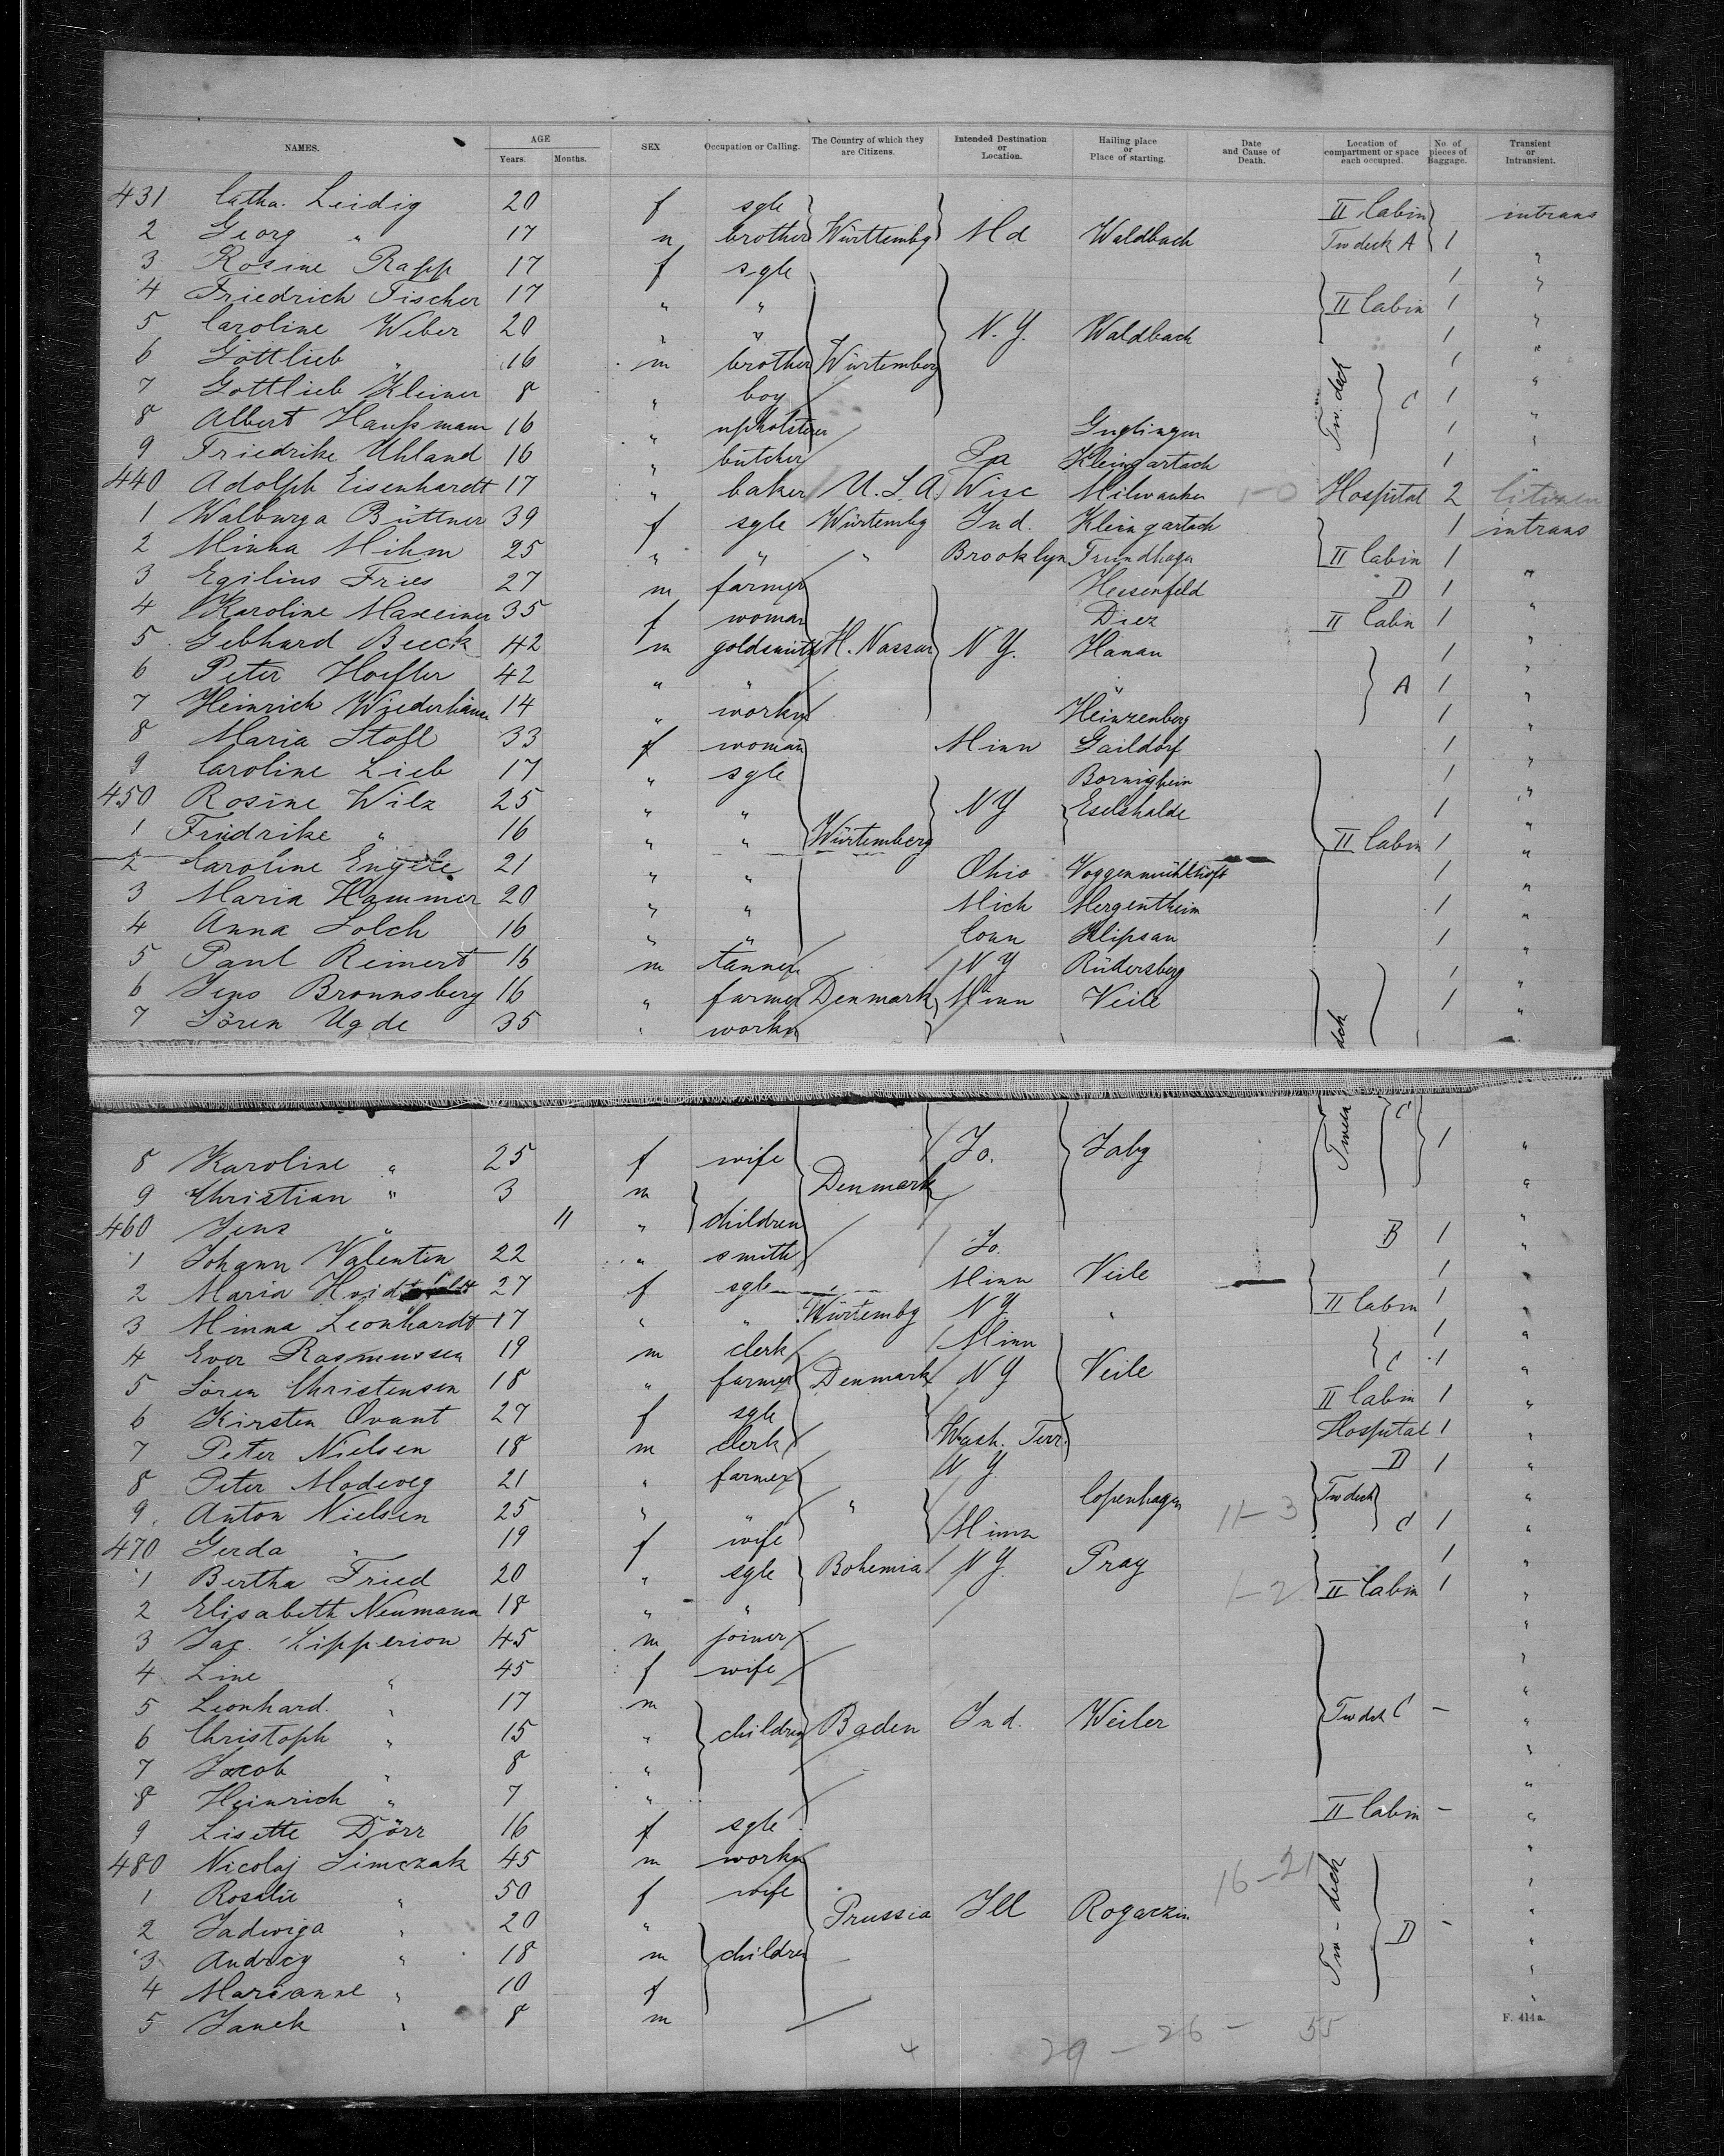 NAMES. AGE Years. Months. SEX Occupation or Calling. The Country of which they are Citizens. Intended Destination or Location. Hailing place or Place of starting. Date and Cause of Death. Location of compartment or space each occupied. No. of pieces of Baggage. Transient or Intransient.
431 Catha. Leidig 20 f sgle II Cabin intrans
2 Georg " 17 m brother Württembg Md Waldbach Tw deck A 1
3 Rosine Rapp 17 f sgle 1 "
4 Friedrich Fischer 17 " " II Cabin 1 "
5 Caroline Weber 20 " " N.Y. Waldbach 1 "
6 Gottlieb " 16 m brother Würtemberg 1 "
7 Gottlieb Kleiner 8 " boy Tw. deck C 1 "
8 Albert Haußmann 16 " upholsterer Guglingen 1 "
9 Friedrike Uhland 16 " butcher Pa Kleingartach 1 "
440 Adolph Eisenhardt 17 " baker U.S.A. Wisc Milwaukee 1-0 Hospital 2 Citizen
1 Walburga Büttner 39 f sgle Würtembg Ind. Kleingartach 1 intrans
2 Minna Mihm 25 " " " Brooklyn II Cabin 1 "
3 Egilius Fries 27 m farmer D 1 "
4 Karoline Maxeiner 35 f woman Diez II Cabin 1 "
5 Gebhard Beeck 42 m goldsmith H. Nassau N.Y. Hanau 1 "
6 Peter Hoefler 42 " " " A 1 "
7 Heinrich 14 " workm Heinzenberg 1 "
8 Maria Stoll 33 f woman Minn Gaildorf 1 "
9 Caroline Lieb 17 " sgle 1 "
450 Rosine Wilz 25 " " NY Eselshalde 1 "
1 Friedrike " 16 " " Würtemberg II Cabin 1 "
2 Caroline Engele 21 " " Ohio 1 "
3 Maria Hammer 20 " " Mich Mergentheim 1 "
4 Anna Solch 16 " " Conn Klipsau 1 "
5 Paul Reinert 16 m tanner NY Rüdersberg 1 "
6 Jens Bronnsberg 16 " farmer Denmark Minn Veile 1 "
7 Sören Ugde 35 " workm deck
8 Karoline " 25 f wife Jo. Jaby C 1 "
9 Christian " 3 m Denmark "
460 Jens " 11 " children B 1 "
1 Johann Valentin 22 " smith Jo. 1 "
2 Maria 27 f sgle Minn Veile 1 "
3 Minna Leonhardt 17 " " Würtembg NY " II Cabin 1 "
4 Ever Rasmussen 19 m clerk Minn 1 "
5 Sören Christensen 18 " farmer Denmark NY Veile C 1 "
6 Kirsten Qvant 27 f sgle II Cabin 1 "
7 Peter Nielsen 18 m clerk Wash. Terr. Hospital 1 "
8 Peter Modeveg 21 " farmer N Y. D 1 "
9 Anton Nielsen 25 " " " Copenhagen 11-3 Tw deck "
470 Gerda " 19 f wife Minn C 1 "
1 Bertha Fried 20 " sgle Bohemia N Y. Prag 1 "
2 Elisabeth Neumann 18 " " 1-2 II Cabin 1 "
3 Jac. Lipperion 45 m joiner "
4 Line " 45 f wife "
5 Leonhard " 17 m "
6 Christoph " 15 " children Baden Ind. Weiler Tw deck C - "
7 Jacob " 8 " "
8 Heinrich " 7 " "
9 Lisette Dörr 16 f sgle II Cabin - "
480 Nicolaj Simczak 45 m workm "
1 Rosalie " 50 f wife 16-21 "
2 Jadwiga " 20 " Prussia Ill Rogarzin Tw-deck D - "
3 Andrey " 18 m children "
4 Marianne " 10 f "
5 Janek " 8 m
F. 414a.
4 29 - 26 - 55